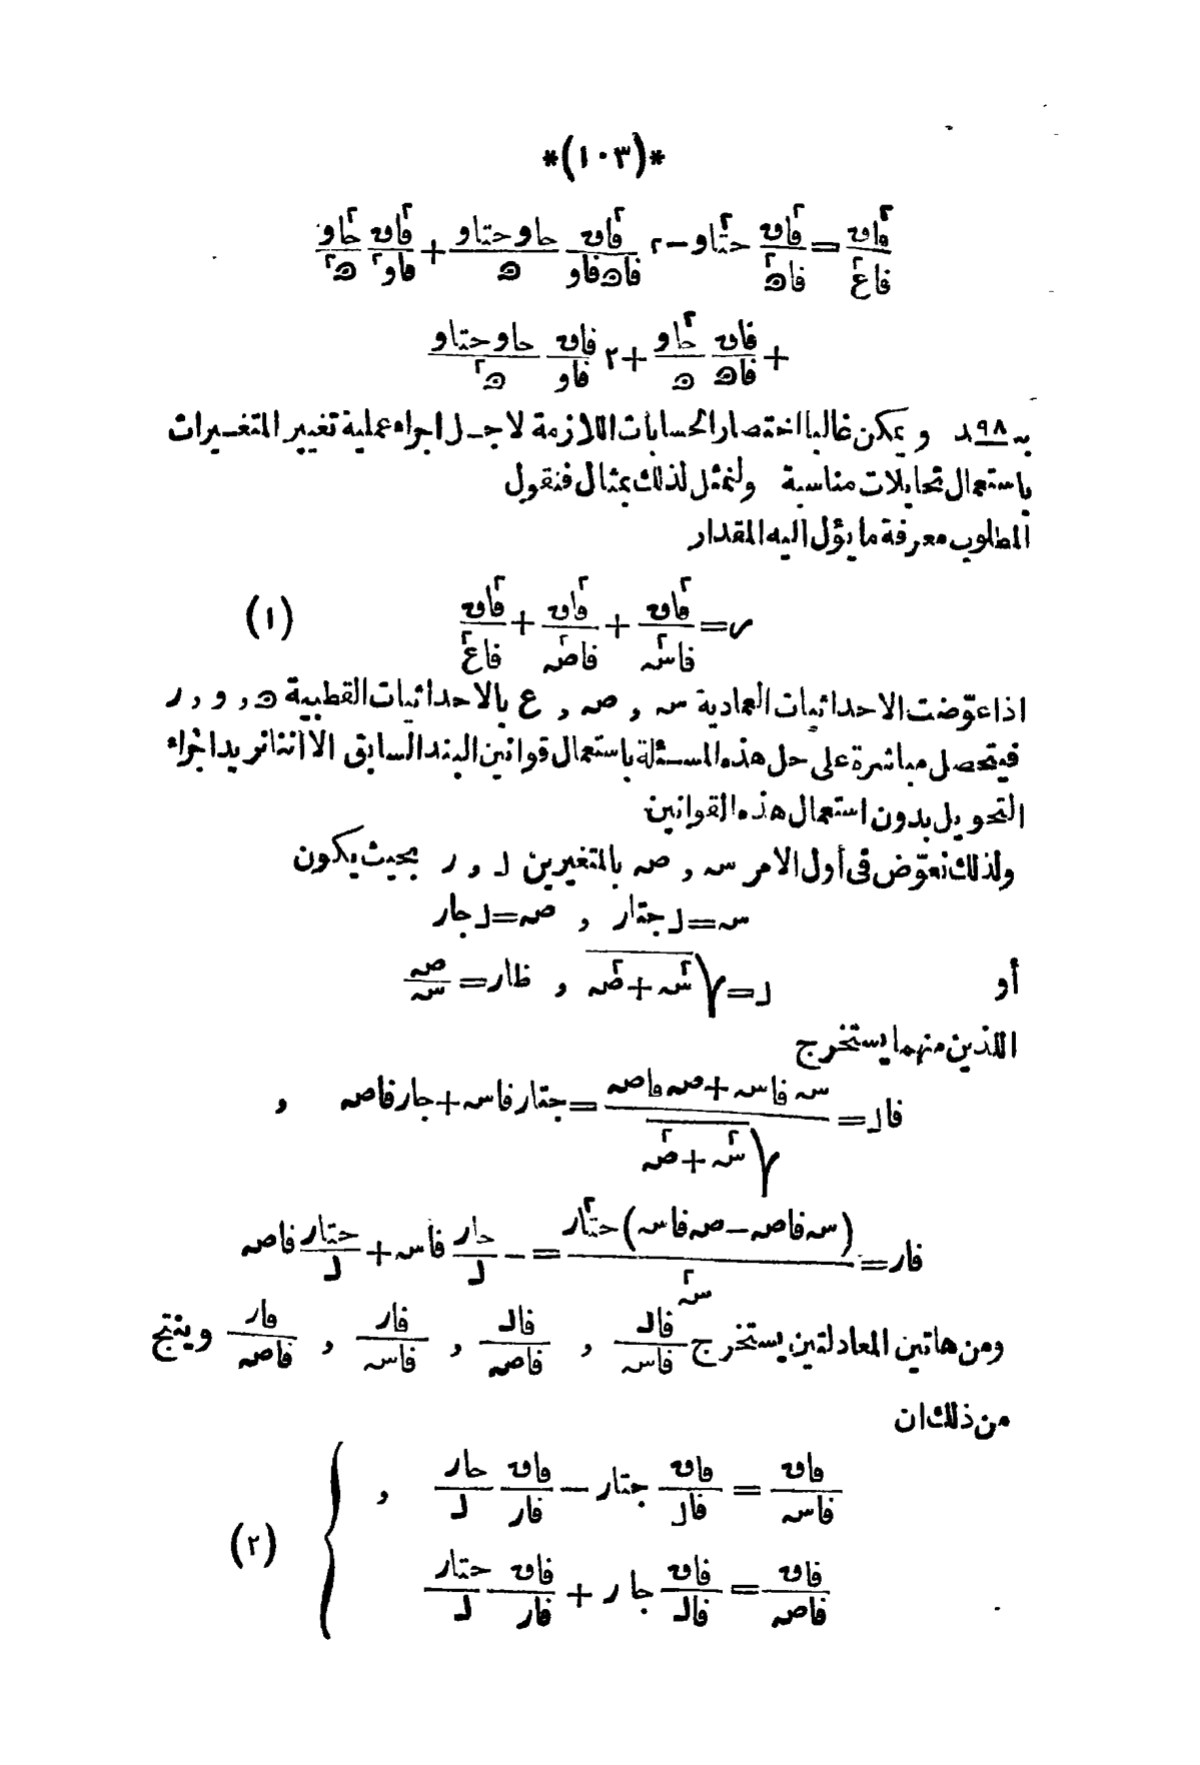 *(١٠٣)*
فا٢ں/فاع٢ = فا٢ں/فاھ٢ حتا٢و − ٢ فا٢ں/فاھفاو حاوحتاو/ھ + فا٢ں/فاو٢ حا٢و/ھ٢
+ فاں/فاھ حا٢و/ھ + ٢ فاں/فاو حاوحتاو/ھ٢
بـ ٩٨ ـد و يمكن غالبا اختصار الحسابات اللازمة لاجل اجراء عملية تغيير المتغيرات
باستعمال تحايلات مناسبة ولنمثل لذلك بمثال فنقول
المطلوب معرفة ما يؤل اليه المقدار
ر = فا٢ں/فاسـ٢ + فا٢ں/فاصـ٢ + فا٢ں/فاع٢ (١)
اذا عوّضت الاحداثيات العمادية سـ , صـ , ع بالاحداثيات القطبية ھ , و , ر
فيتحصل مباشرة على حل هذه المسئلة باستعمال قوانين البند السابق الا اننا نريد اجراء
التحويل بدون استعمال هذه القوانين
ولذلك نعوّض فى أول الامر سـ , صـ بالمتغيرين لـ , ر بحيث يكون
سـ = لـ جتار , صـ = لـ جار
أو لـ = √(سـ٢ + صـ٢) , ظار = صـ/سـ
اللذين منهما يستخرج
فالـ = (سـ فاسـ + صـ فاصـ)/√(سـ٢ + صـ٢) = جتار فاسـ + جار فاصـ ,
فار = (سـ فاصـ − صـ فاسـ) حتا٢ر/سـ٢ = − حار/لـ فاسـ + حتار/لـ فاصـ
ومن هاتين المعادلتين يستخرج فالـ/فاسـ , فالـ/فاصـ , فار/فاسـ , فار/فاصـ وينتج
من ذلك ان
فاں/فاسـ = فاں/فالـ جتار − فاں/فار حار/لـ ,
(٢)
فاں/فاصـ = فاں/فالـ جار + فاں/فار حتار/لـ